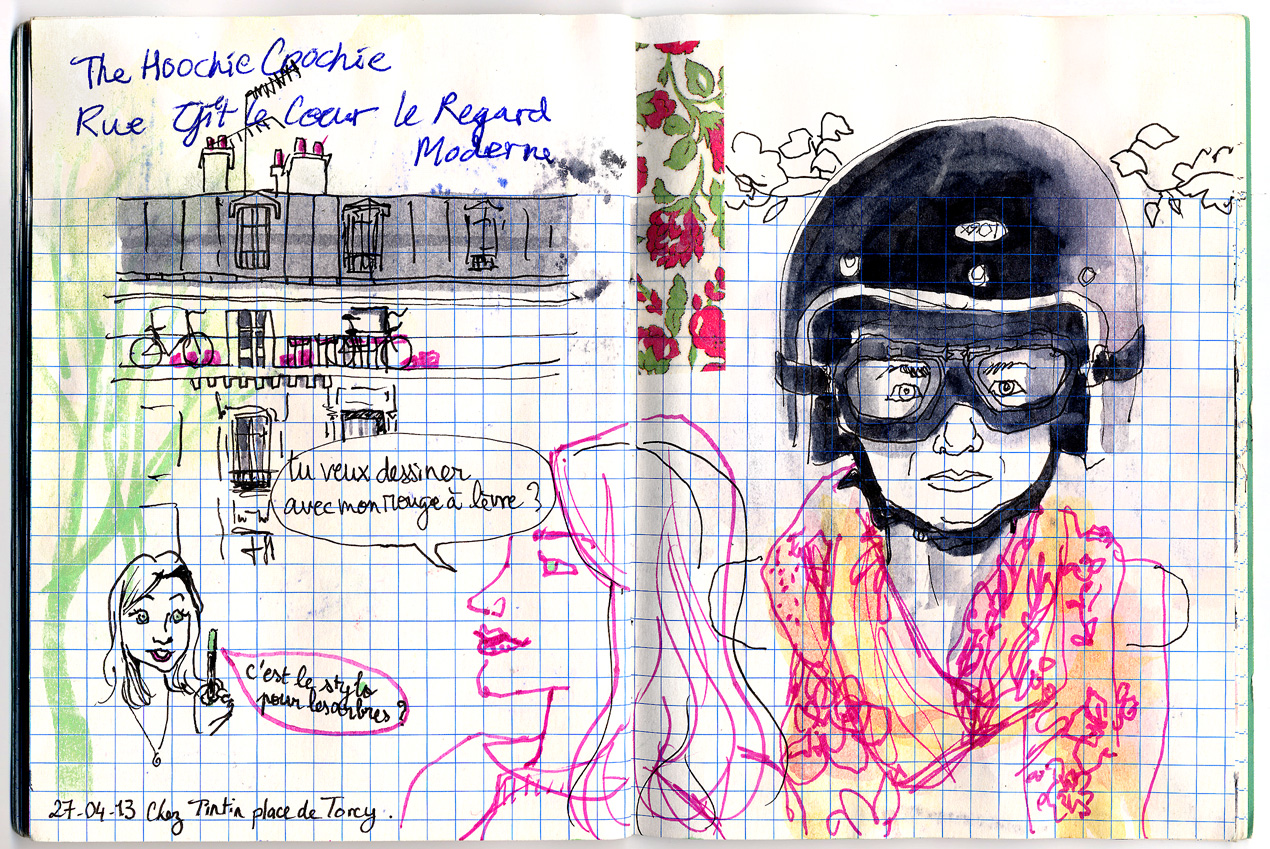 The Hoochie Coochie
Rue Gît le Cœur le Regard
Moderne
tu veux dessiner
avec mon rouge à lèvre ?
c'est le stylo
pour les arbres ?
27-04-13 Chez Tintin place de Torcy .